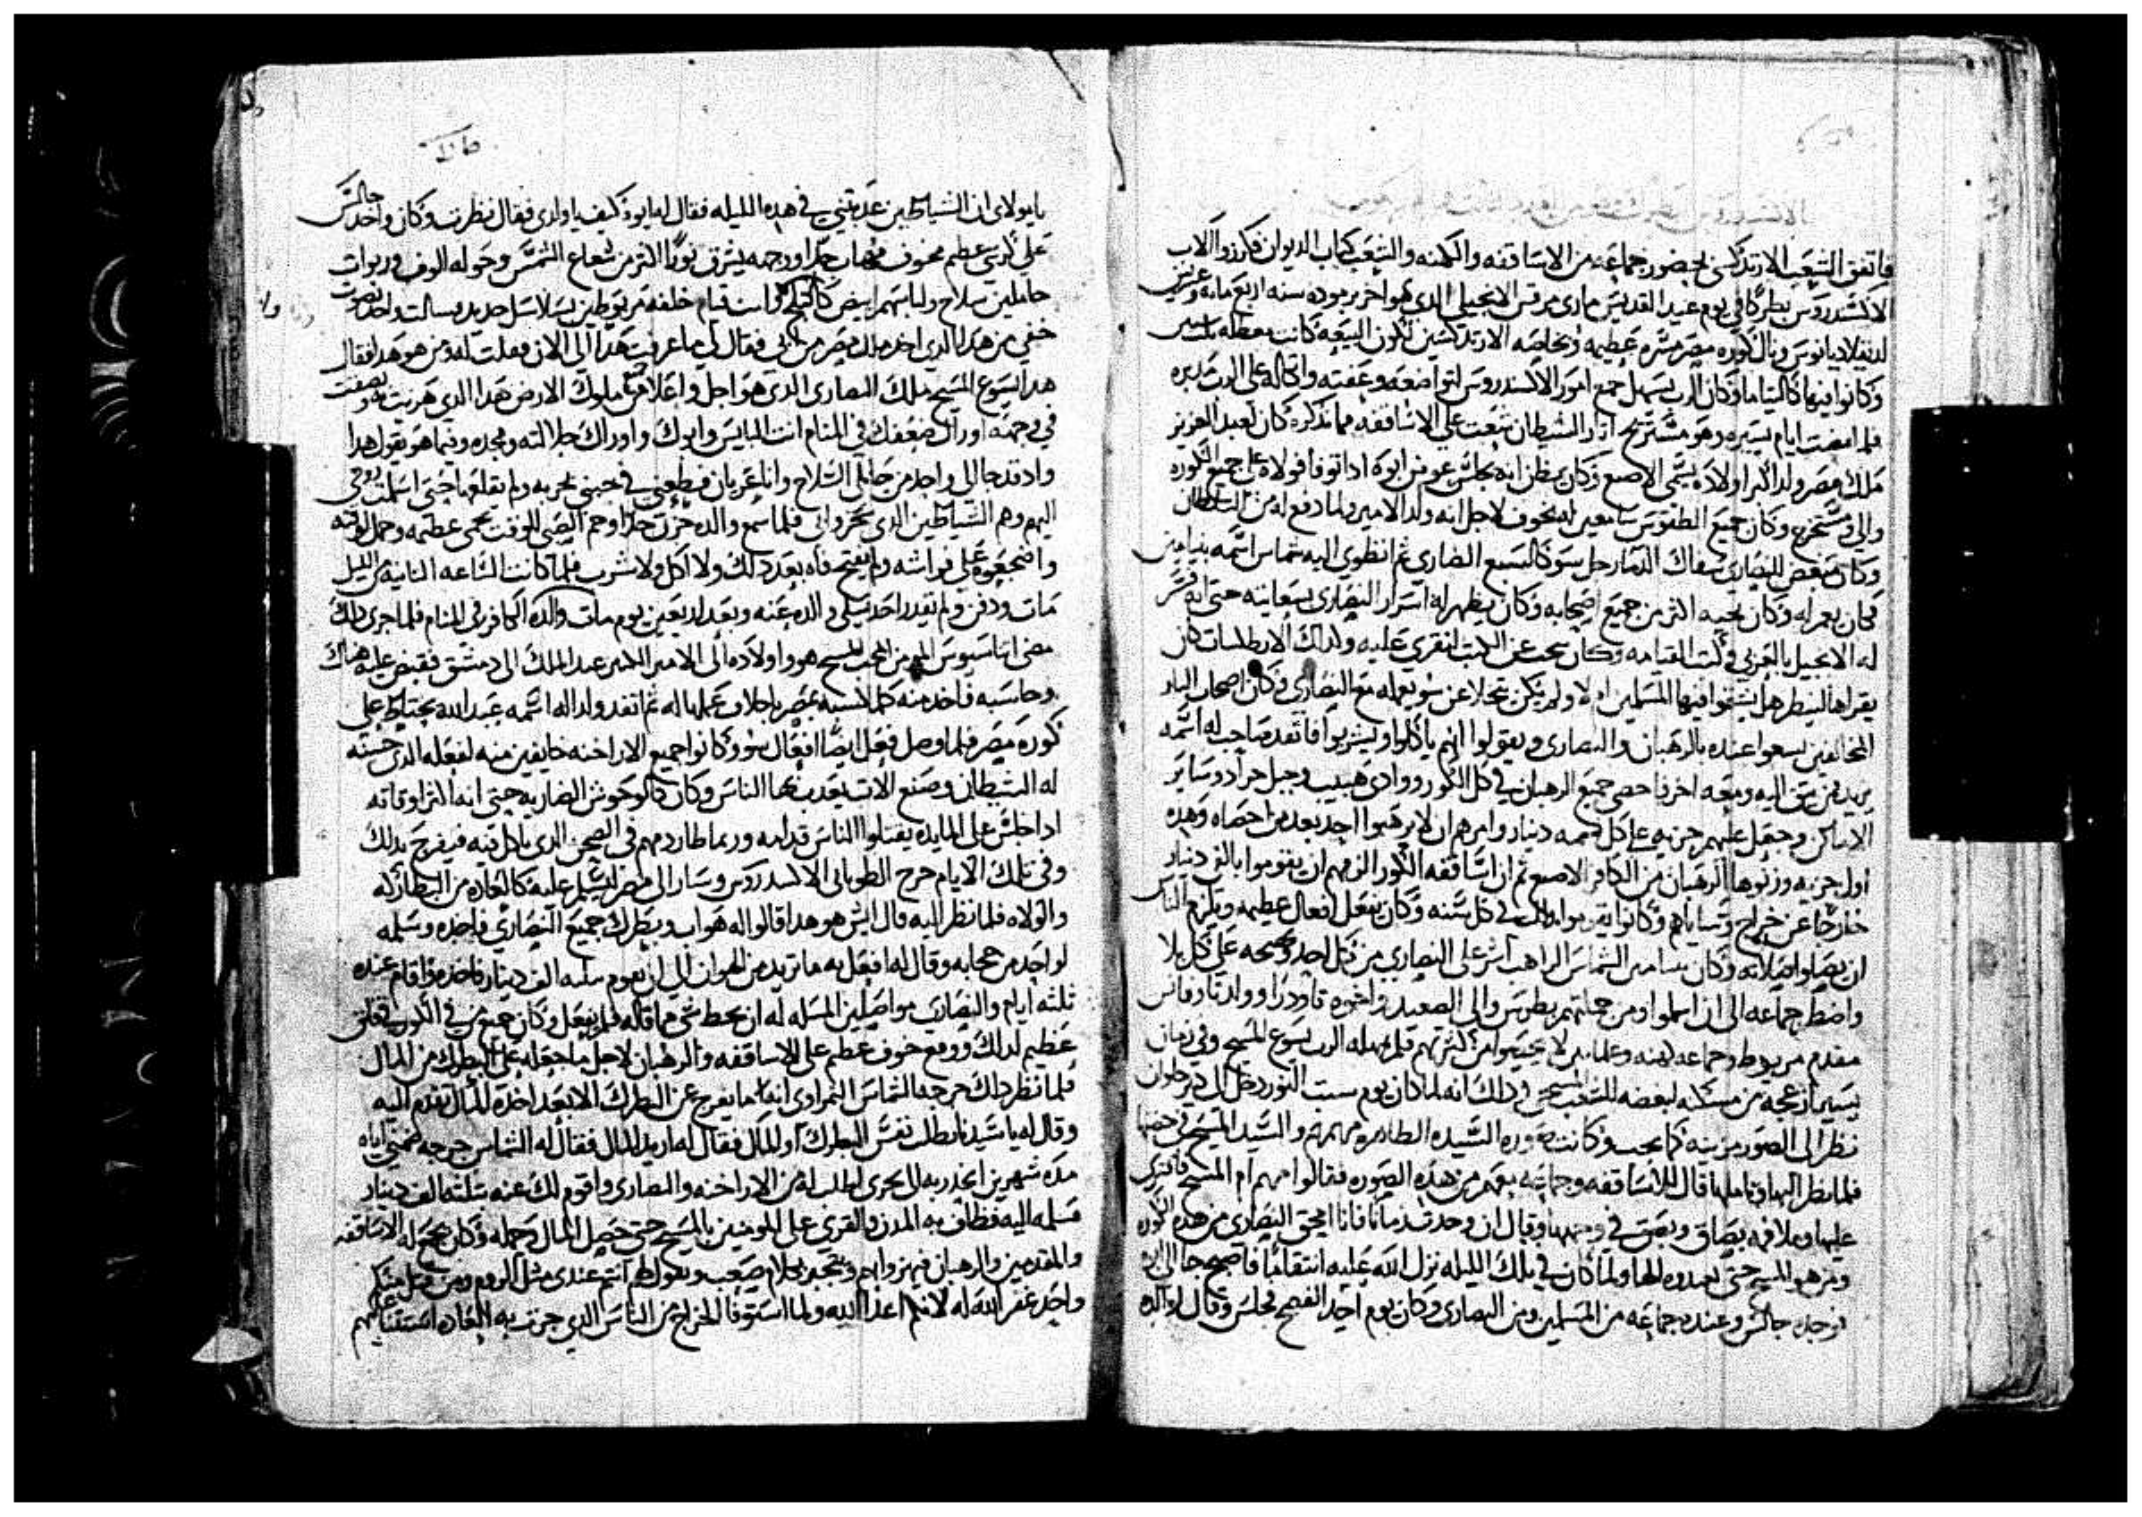 فاتفق الشعب الارتدكسى بحضور جماعه من الاساقفه والكهنه والشعب كتاب الديوان فكرزوا الاب
الاكسندروس بطركا في يوم عيد القديس مارى مرقس الانجيلى الدي هو اخر برموده سنه اربع مايه وعشرين
لدىقلاديانوس ونال كوره مصر مسره عظيمه وبخاصه الارتدكسيين لكون البيعه كانت معطله
وكانوا فيها كاليتاما وكان الرب يسهل جميع امور الاكسندروس لتواضعه وعفته واتكاله على الرب مدبره
فلما مضت ايام يسيره وهو مستريح اثار الشيطان شغب على الاساقفه مما نذكره كان لعبد العزيز
ملك مصر ولد اكبر اولاده يسمى الاصبع وكان يظن انه يجلس عوض ابوه اذا توفا فولاه على جميع الكوره
والى ومستخرج وكان جميع الطقوس سامعين له بخوف لاجل انه ولد الامير ولما دفع له من السلطان
وكان مبغض للنصارى سفاك الدما رجل سو كالسبع الضارى ثم انطوى اليه شماس اسمه بنيامين
فكان يعمر له وكان يحبه اكثر من جميع اصحابه وكان يظهر له اسرار النصارى بسعايته حتى انه فسر
له الانجيل بالعربى وكتب القيامه وكان يبحث عن الكتب لتقرى عليه وكذلك الارطستيكات كان
يقراها لينظر هل يشتموا فيها المسلمين ام لا ولم يكن يتخلا عن سو يعمله مع النصارى وكان اصحاب البار
المخالفين يسعوا عنده بالرهبان والنصارى ويقولوا انهم ياكلوا ويشربوا فانفد صاحب له اسمه
يزيد من يثق اليه ومعه اخر فاحصى جميع الرهبان في كل الكور ووادى هبيب وجبل جراد وساير
الاماكن وجعل عليهم جزيه على كل نسمه دينار وامرهم ان لا يرهبوا احد بعد من احصاه وهده
اول جزيه وزنوها الرهبان من الكافر الاصبع ثم ان اساقفه الكور الزمهم ان يقوموا بالفى دينار
خارجا عن خراج وساياهم وكانوا يقوموا بدلك في كل سنه وكان يفعل افعال عظيمه ويلزم الناس
ان يصلوا صلاته وكان بنيامين الشماس الراهب اشر على النصارى من كل احد ويبحثه على كل بلا
واضطر جماعه الى ان اسلموا ومن جملتهم بطرس والى الصعيد واخوه تاودرا وولد تاوفانس
مقدم مريوط وجماعه كهنه وعلمانيين لا يحصوا من كثرتهم فلم يمهله الرب يسوع المسيح وفي زمان
يسير ازعجه من مسكنه لبغضه للشعب المسيحى ودلك انه لما كان يوم سبت النور دخل الى دير حلوان
نظر الى الصور مزينه كما يجب وكانت صوره السيده الطاهره مرتمريم والسيد المسيح في حضنها
فلما نظر اليها وتاملها قال للاساقفه وجماعه معهم من هده الصوره فقالوا مريم ام المسيح فافترى
عليها وملا فمه بصاق وبصق في وجهها وقال ان وجدت زمانا فانا امحى النصارى من هده الكوره
ومن هو المسيح حتى يعبدوه الها ولما كان في تلك الليله نزل الله عليه انتقاما فاصبح جا الى ابوه
فوجده جالس وعنده جماعه من المسلمين ومن النصارى وكان يوم احد الفصح فجلس وقال لوالده
يا مولاى ان الشياطين عدبتنى في هده الليله فقال له ابوه كيف يا ولدى فقال نظرت وكان واحد جالس
على كرسى عظيم مخوف مهاب جدا ووجهه يشرق نورا اكثر من شعاع الشمس وحوله الوف وربوات
حاملين سلاح ولباسهم ابيض كالثلج وانت قيام خلفه مربوطين بسلاسل حديد وسالت واحد بصوت
خفى من هدا الدى اخد ملك مصر من ابى فقال لى ما عرفت هدا الى الان فقلت له ومن هو هدا فقال
هدا يسوع المسيح ملك النصارى الدى هو اجل واعلا من جميع ملوك الارض هدا الدى هزيت به وبصقت
في وجهه اوراك ضعفك في المنام انت البايس وابوك واوراك جلالته ومجده وفيما هو يقول هدا
وادقد جا الى واحد من حاملى السلاح وانا عريان فطعنى في جنبى بحربه ولم يقلعها حتى اسلمت روحى
اليهم وهم الشياطين الدى يجرونى فلما سمع والده حزن جدا وحم الصبى للوقت بحمى عظيمه وحمل لوقته
واضجعوه على فراشه ولم يفتح فاه بعد دلك ولا اكل ولا شرب فلما كانت الساعه الثانيه من الليل
مات ودفن ولم يقدر احد يسلى والده عنه وبعد اربعين يوم مات والده الكافر في المنام فلما جرى دلك
مضى اتناسيوس المومن المحب للمسيح هو واولاده الى الامير الكبير عبد الملك الى دمشق فقبض عليه هناك
وحاسبه فاخد منه كلما كسبه بمصر باخلاف عملها له ثم انفد ولدا له اسمه عبد الله يحتاط على
كوره مصر فلما وصل فعل ايضا افعال سو وكانوا جميع الاراخنه خايفين منه لفعله الدى حسنه
له الشيطان وصنع الات يعدب بها الناس وكان كالوحوش الضاريه حتى انه اكثر اوقاته
ادا جلس على المايده يقتلوا الناس قدامه وربما طار دمهم في الصحن الدى ياكل فيه فيفرح بدلك
وفى تلك الايام خرج الطوبانى الاكسندروس وسار الى مصر ليسلم عليه كالعاده من البطاركه
والولاه فلما نظر اليه قال ايش هو هدا قالوا له هو اب وبطرك جميع النصارى فاخده وسلمه
لواحد من حجابه وقال له افعل به ما تريد من الهوان الى ان يقوم بتلته الف دينار فاخده واقام عنده
تلته ايام والنصارى مواصلين المسله له ان يحط شى مما قاله فلم يفعل وكان جميع من في الكور في قلق
عظيم لدلك ووقع خوف عظيم على الاساقفه والرهبان لاجل ما جعله على البطرك من المال
فلما نظر دلك جرجه الشماس النمراوى انه ما يفرج عن البطرك الا بعد اخده المال تقدم اليه
وقال له يا سيدنا تطلب نفس البطرك او المال فقال له اريد المال فقال له الشماس جرجه ضمنى اياه
مده شهرين انحدر به الى بحرى اطلب له من الاراخنه والنصارى واقوم لك عنه بتلته الف دينار
فسلمه اليه فطاف به المدن والقرى على المومنين بالمسيح حتى حصل المال وحمله وكان يجمع له الاساقفه
والمقدمين والرهبان فيهزوا بهم ويجحد بكلام صعب ويقول لهم انتم عندى مثل الروم ومن قتل منكم
واحد غفر الله له لانكم اعدا الله ولما استوفا الخراج من الناس الدى جرت به العاده استقضا عليهم